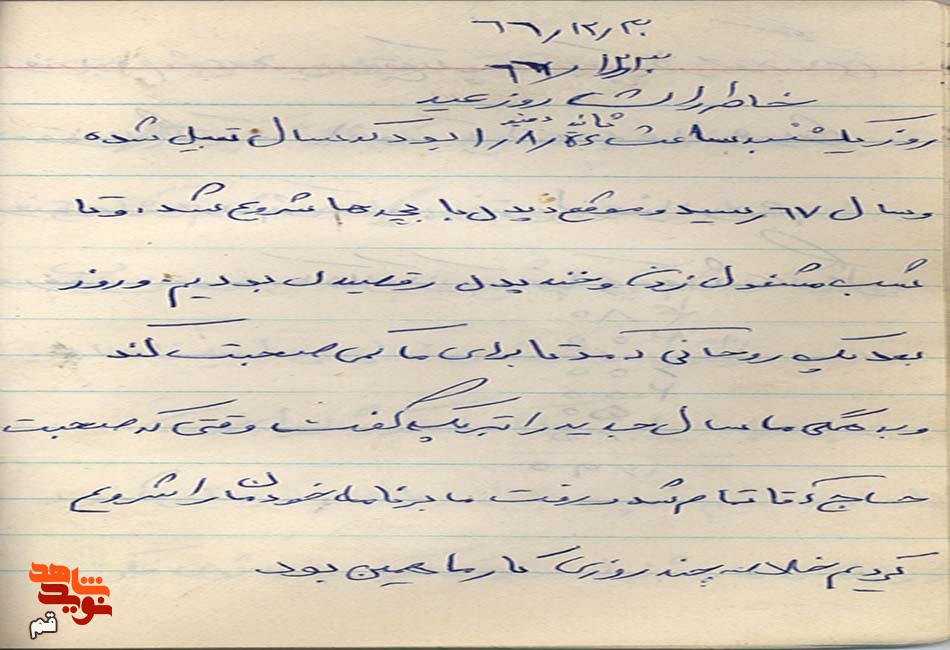 ۶۶٫۱۲٫۳۰
خاطرات روز عید
روز یکشنبه ساعت ۱٫۸٫۵۶ ثانیه بود که سال تحویل شده
و سال ۶۷ رسید و موقع دیدن با بچه ها شروع شد. و تا
شب مشغول زدن و خندیدن رقصیدن بودیم و روز
بعد یک روحانی آمد تا برای ما کمی صحبت کند
و به همگی ما سال جدید را تبریک گفت وقتی که صحبت
حاج آقا تمام شد و رفت ما برنامه خودمان را شروع
کردیم خلاصه چند روزی کار ما همین بود
نوید شاهد
قم